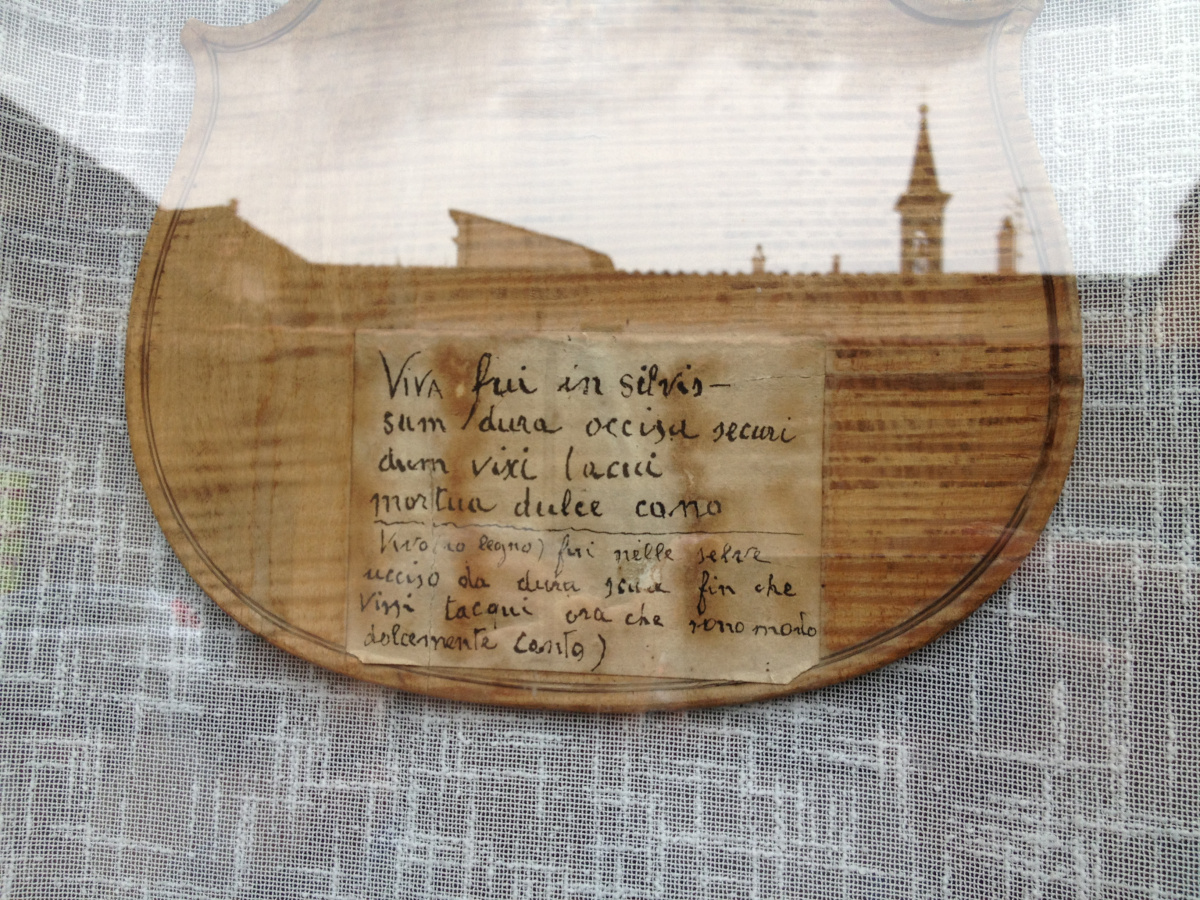 VIVA fui in silvis—
sum dura occisa securi
dum vixi tacui
mortua dulce cano
Vivo (io legno) fui nelle selve
ucciso da dura scua fin che
vissi tacqui ora che sono morto
dolcemente canto)